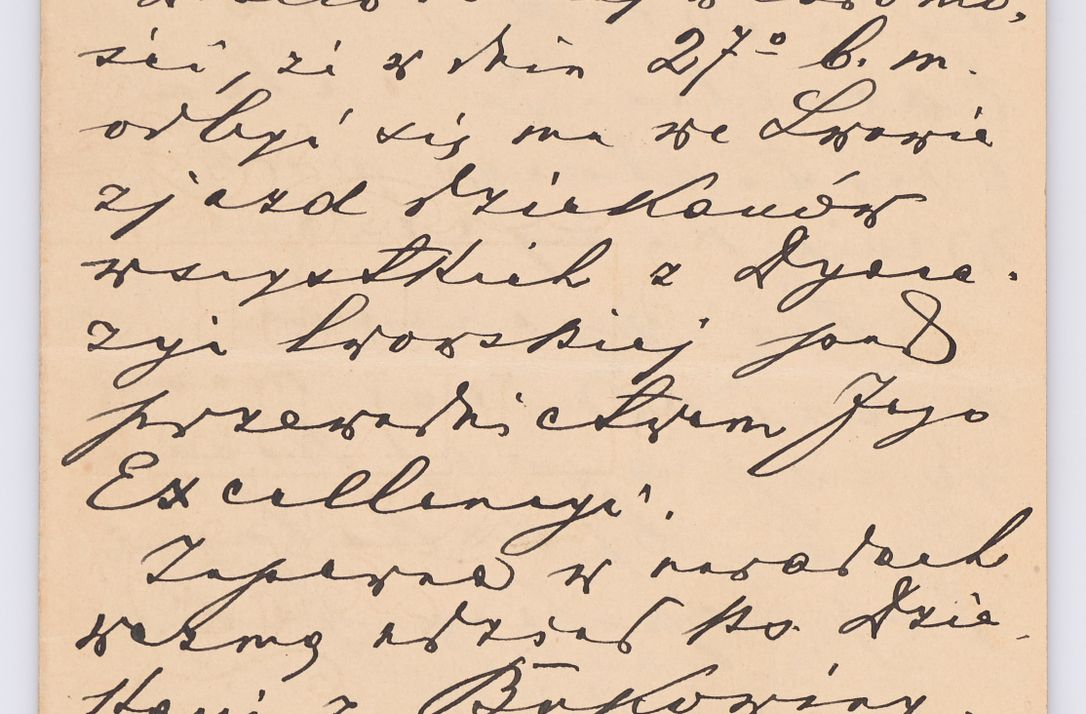 ści, że w dniu 27º b. m.
odbyć się ma we Lwowie
zjazd dziekanów
wszystkich z Dyece-
zyi lwowskiej pod
przewodnictwem Jego
Excellencyi.
Zapewne w naradach
wezmą udział ks. Dzie-
kani z Bukowiny.